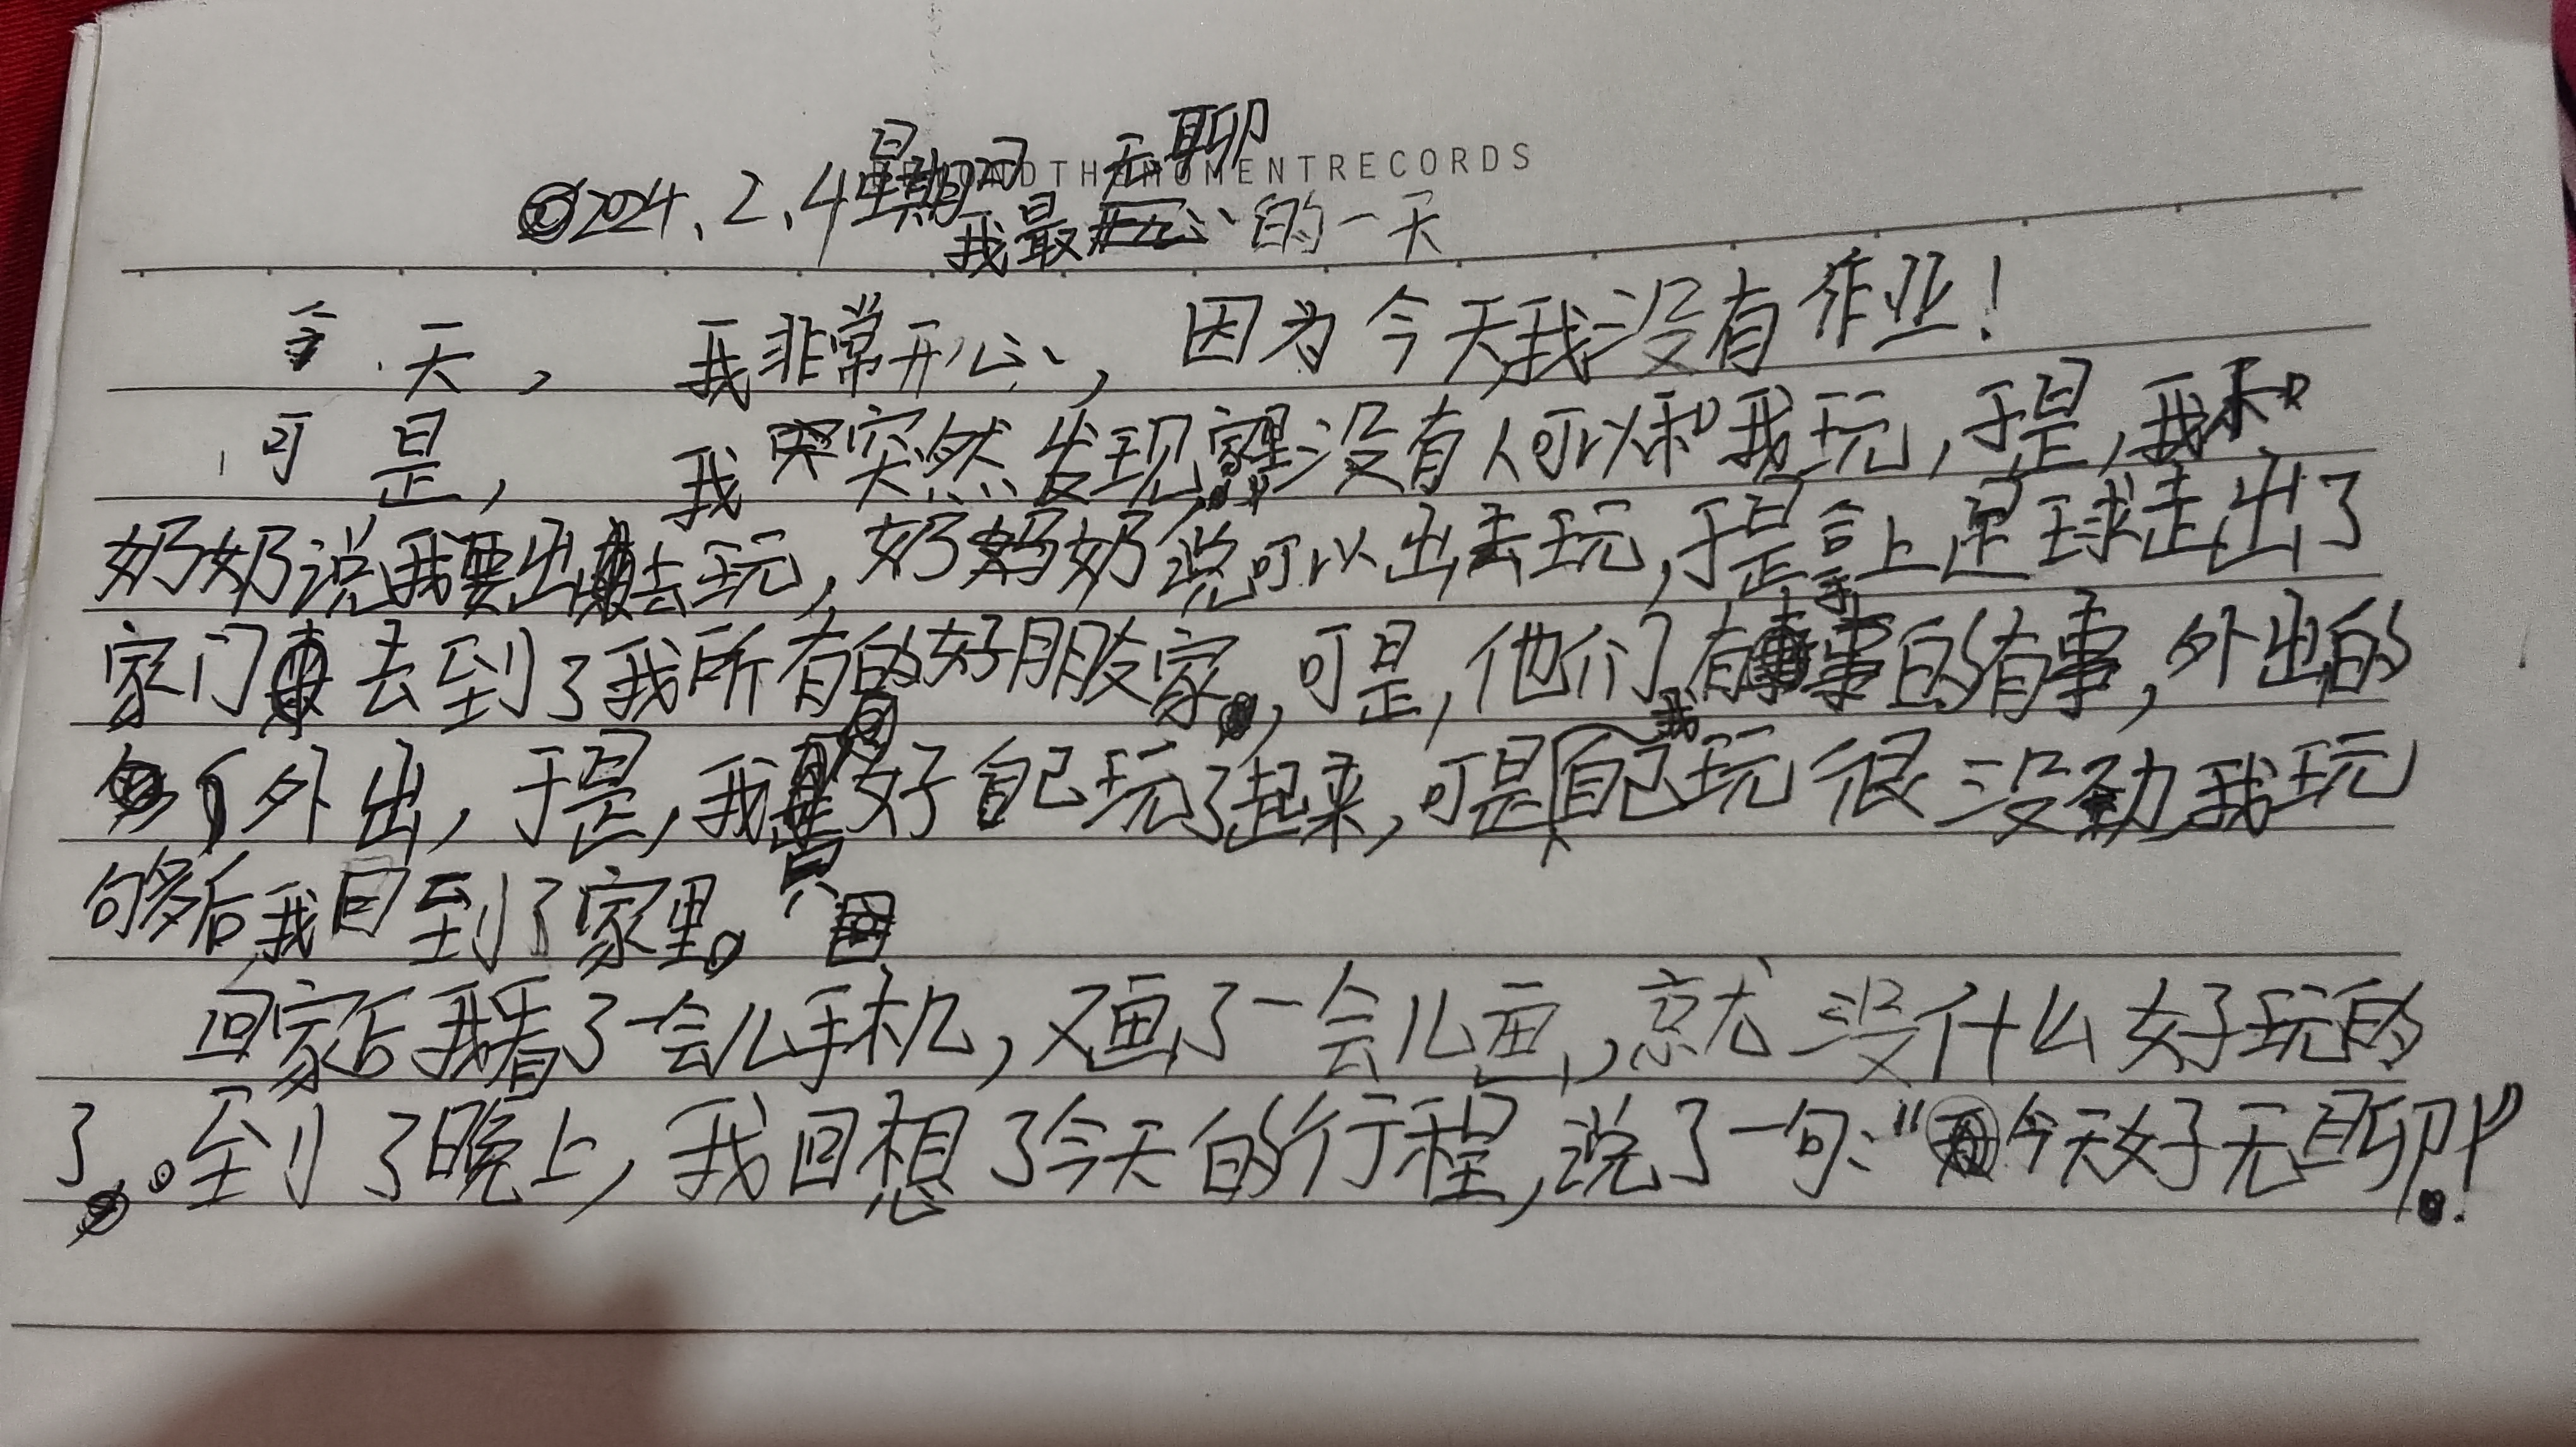 2024.2.4星期日
MOMENTRECORDS
我最无聊的一天
今天，我非常开心，因为今天我没有作业！
可是，我突然发现家里没有人可以和我玩，于是，我和
奶奶说我要出去玩，奶奶说可以出去玩，于是拿上足球走出了
家门去到了我所有的好朋友家，可是，他们有事的有事，外出的
外出，于是，我只好自己玩了起来，可是我自己玩很没劲我玩
够后我回到了家里。
回家后我看了一会儿手机，又画了一会儿画，就没什么好玩的
了。到了晚上，我回想了今天的行程，说了一句：“今天好无聊！”